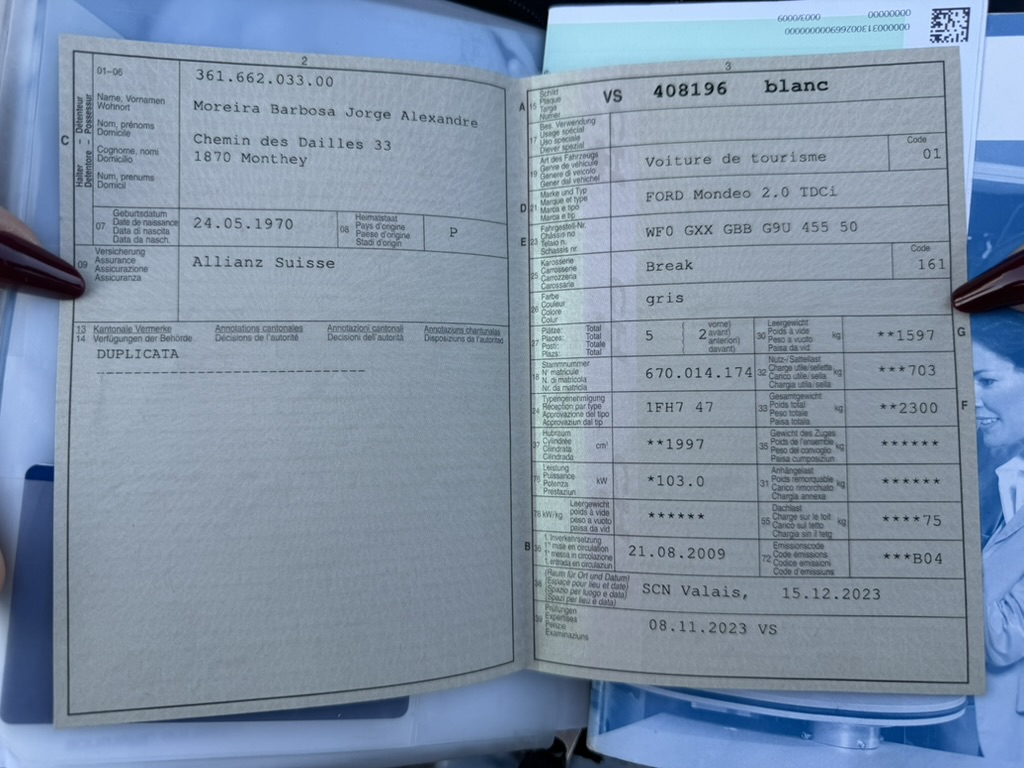 00000031300266960000000000
00000000 0003/0009
2
01–06
361.662.033.00
C
Halter – Détenteur
Detentore – Possessur
Name, Vornamen
Wohnort
Nom, prénoms
Domicile
Cognome, nomi
Domicilio
Num, prenums
Domicil
Moreira Barbosa Jorge Alexandre
Chemin des Dailles 33
1870 Monthey
07
Geburtsdatum
Date de naissance
Data di nascita
Data da nasch.
24.05.1970
08
Heimatstaat
Pays d'origine
Paese d'origine
Stadi d'origin
P
09
Versicherung
Assurance
Assicurazione
Assicuranza
Allianz Suisse
13
14
Kantonale Vermerke
Verfügungen der Behörde
Annotations cantonales
Décisions de l'autorité
Annotazioni cantonali
Decisioni dell'autorità
Annotaziuns chantunalas
Disposiziuns da l'autoritad
DUPLICATA
3
A
15
Schild
Plaque
Targa
Numer
VS 408196 blanc
17
Bes. Verwendung
Usage spécial
Uso speciale
Diever spezial
19
Art des Fahrzeugs
Genre de véhicule
Genere di veicolo
Gener dal vehichel
Voiture de tourisme
Code
01
D
21
Marke und Typ
Marque et type
Marca e tipo
Marca e tip
FORD Mondeo 2.0 TDCi
E
23
Fahrgestell-Nr.
Châssis no
Telaio n.
Schassis nr.
WF0 GXX GBB G9U 455 50
25
Karosserie
Carrosserie
Carrozzeria
Carossaria
Break
Code
161
26
Farbe
Couleur
Colore
Colur
gris
27
Plätze: Total
Places: Total
Posti: Totale
Plazs: Total
5
( 2
vorne)
avant)
anteriori)
davant)
30
Leergewicht
Poids à vide
Peso a vuoto
Paisa da vid
kg
**1597
G
18
Stammnummer
N° matricule
N. di matricola
Nr. da matricla
670.014.174
32
Nutz-/Sattellast
Charge utile/sellette
Carico utile/sella
Chargia utila/sella
kg
***703
24
Typengenehmigung
Réception par type
Approvazione del tipo
Approvaziun dal tip
1FH7 47
33
Gesamtgewicht
Poids total
Peso totale
Paisa totala
kg
**2300
F
37
Hubraum
Cylindrée
Cilindrata
Cilindrada
cm³
**1997
35
Gewicht des Zuges
Poids de l'ensemble
Peso del convoglio
Paisa cumposiziun
kg
******
76
Leistung
Puissance
Potenza
Prestaziun
kW
*103.0
31
Anhängelast
Poids remorquable
Carico rimorchiato
Chargia annexa
kg
******
78
kW/kg
Leergewicht
poids à vide
peso a vuoto
paisa da vid
******
55
Dachlast
Charge sur le toit
Carico sul tetto
Chargia sin il tetg
kg
****75
B
36
1. Inverkehrsetzung
1re mise en circulation
1a messa in circolazione
1. entrada en circulaziun
21.08.2009
72
Emissionscode
Code émissions
Codice emissioni
Code d'emissiuns
***B04
38
(Raum für Ort und Datum)
(Espace pour lieu et date)
(Spazio per luogo e data)
(Spazi per lieu e data)
SCN Valais, 15.12.2023
39
Prüfungen
Expertises
Perizie
Examinaziuns
08.11.2023 VS